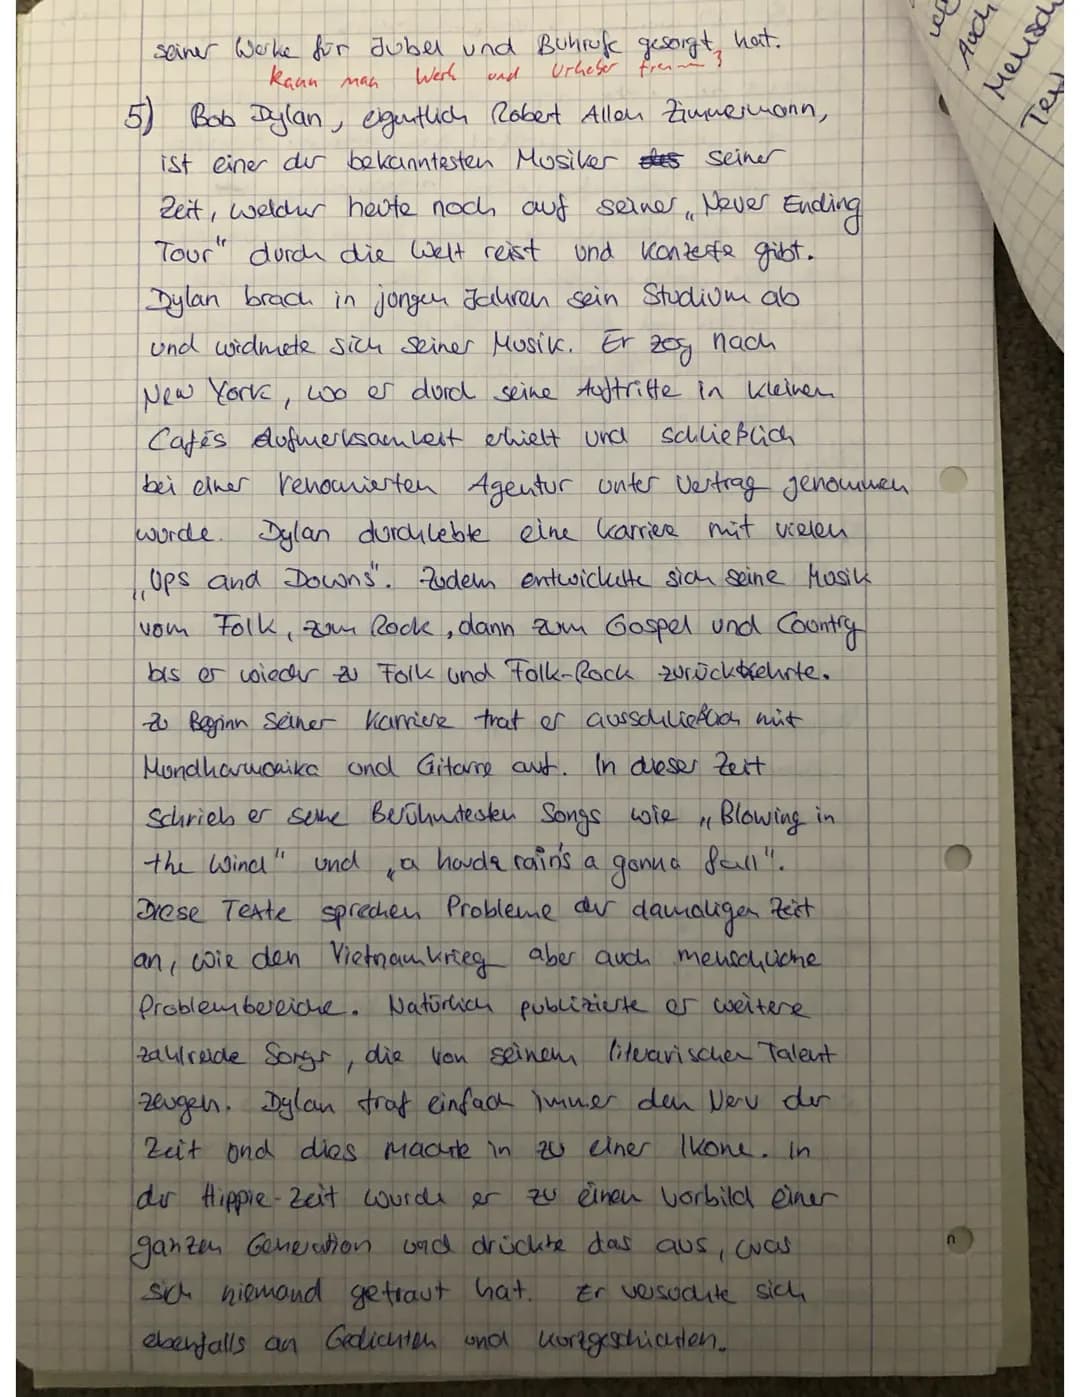 seiner Werke für Jubel und Buhrufe gesorgt hat.
Kann man Werk und Urheber trennen?
5) Bob Dylan, eigentlich Robert Allen Zimmermann,
ist einer der bekanntesten Musiker des seiner
Zeit, welcher heute noch auf seiner „Never Ending
Tour" durch die Welt reist und Konzerte gibt.
Dylan brach in jungen Jahren sein Studium ab
und widmete sich seiner Musik. Er zog nach
New York, wo er durch seine Auftritte in kleinen
Cafés Aufmerksamkeit erhielt und schließlich
bei einer renomierten Agentur unter Vertrag genommen
wurde. Dylan durchlebte eine Karriere mit vielen
„Ups and Downs". Zudem entwickelte sich seine Musik
vom Folk, zum Rock, dann zum Gospel und Country
bis er wieder zu Folk und Folk-Rock zurückkehrte.
Zu Beginn seiner Karriere trat er ausschließlich mit
Mundharmonika und Gitarre auf. In dieser Zeit
schrieb er seine Berühmtesten Songs wie „Blowing in
the Wind" und „a harde rain's a gonna fall".
Diese Texte sprechen Probleme der damaligen Zeit
an, wie den Vietnamkrieg aber auch menschliche
Problembereiche. Natürlich publizierte er weitere
zahlreiche Songs, die von seinem literarischen Talent
zeugen. Dylan traf einfach immer den Nerv der
Zeit und dies machte in zu einer Ikone. In
der Hippie-Zeit wurde er zu einen Vorbild einer
ganzen Generation und drückte das aus, was
sich niemand getraut hat. Er versuchte sich
ebenfalls an Gedichten und Kurzgeschichten.
Auch
Mensch
Text